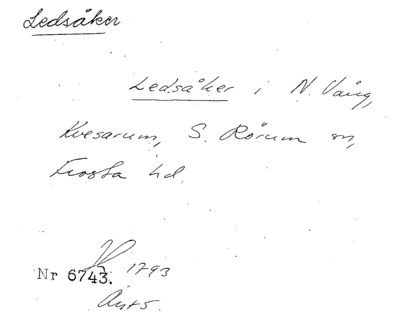 Ledsåker
Ledsåker i N. Vång,
Kvesarum, S. Rörum sn,
Frosta hd.
Nr 6743. 1793